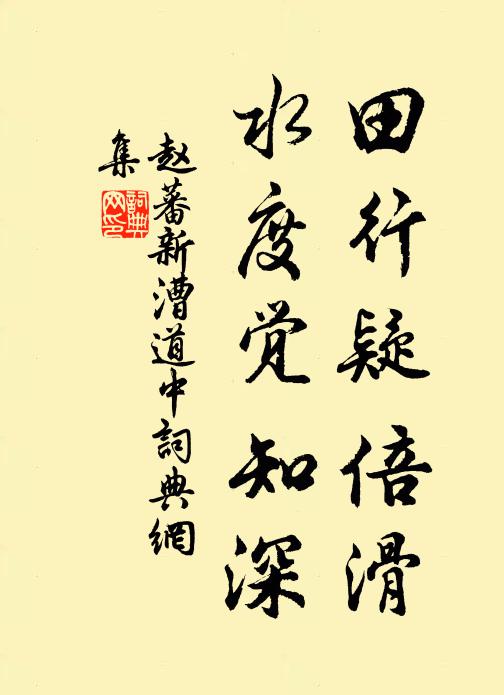 田行疑倍滑
水度觉知深
赵蕃新漕道中詞典網
集
詞典
网印